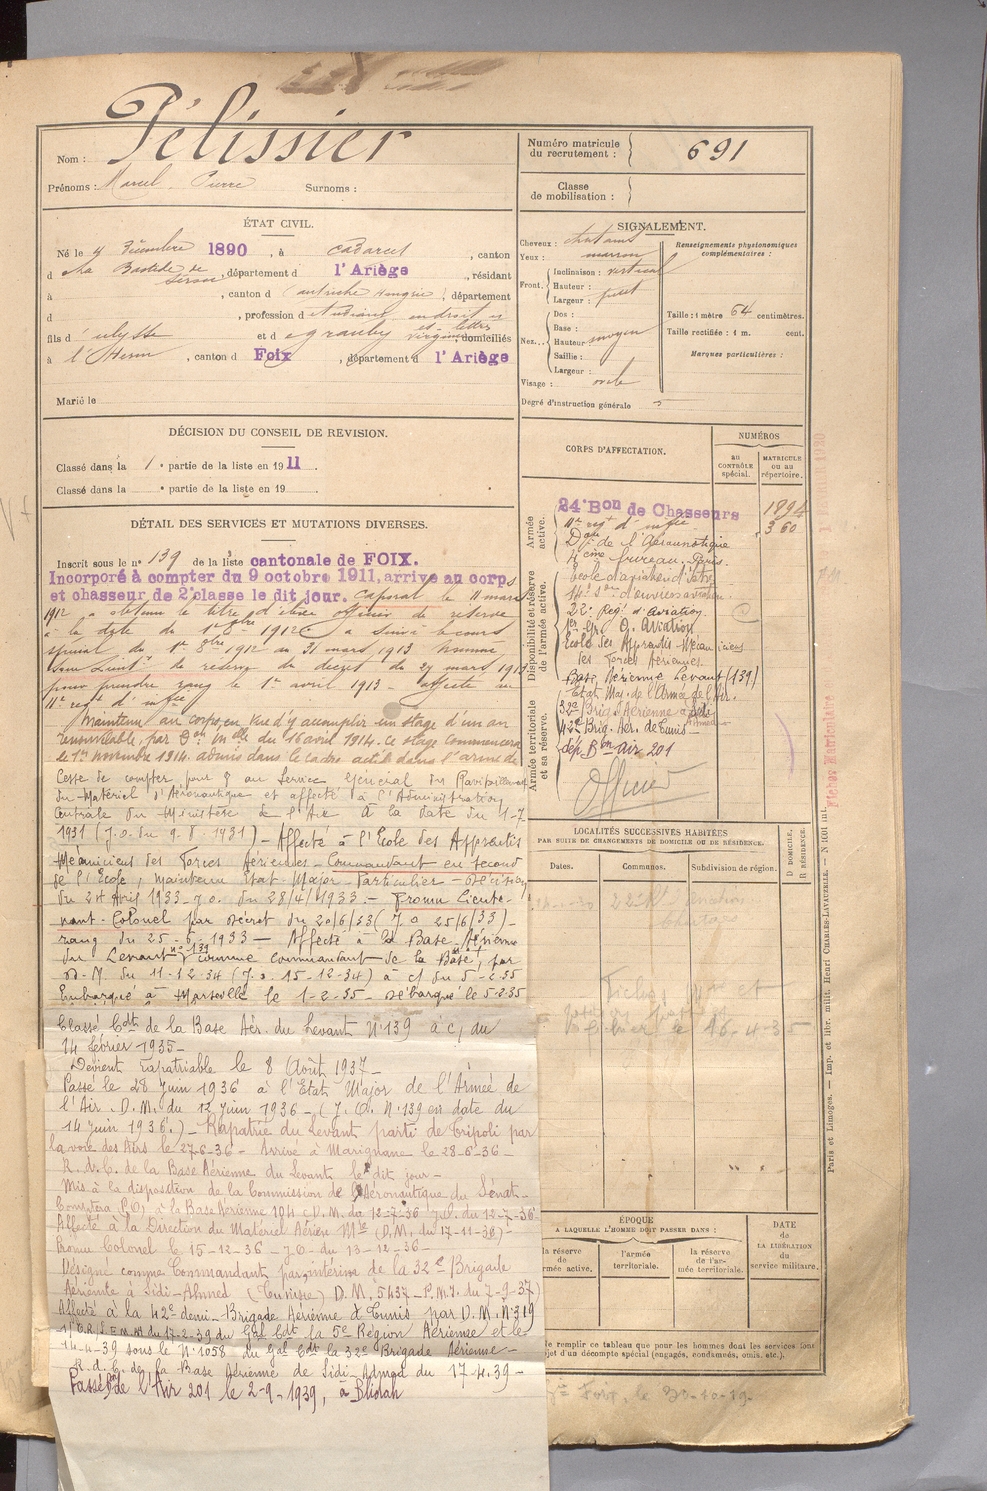 Nom : Pélissier
Prénoms : Marcel Pierre Surnoms :
ÉTAT CIVIL.
Né le 4 Décembre 1890, à Cadarcet, canton
d La Bastide de Sérou, département d l'Ariège, résidant
à , canton d (Autriche Hongrie), département
d , profession d'étudiant en droit et ès lettres
fils d'Ulysse et d Egrauby Virginie, domiciliés
à l'Herm, canton d Foix, département d l'Ariège
Marié le
DÉCISION DU CONSEIL DE REVISION.
Classé dans la 1e partie de la liste en 1911.
Classé dans la e partie de la liste en 19 .
DÉTAIL DES SERVICES ET MUTATIONS DIVERSES.
Inscrit sous le n° 139 de la liste cantonale de FOIX.
Incorporé à compter du 9 octobre 1911, arrivé au corps
et chasseur de 2e classe le dit jour. Caporal le 11 mars
1912 a obtenu le titre d'élève officier de réserve
à la date du 1er 8bre 1912 a suivi le cours
spécial du 1er 8bre 1912 au 31 mars 1913 Nommé
Sous Lieutt de réserve du décret du 29 mars 1913
pour prendre rang le 1er avril 1913 - affecté au
11e régt d'infie
Maintenu au corps en vue d'y accomplir un stage d'un an
renouvelable, par Don Mlle du 16 avril 1914. Ce stage commencera
le 1er novembre 1914. admis dans le cadre actif dans l'armée
Cesse de compter pour au Service Général des
du Matériel d'Aéronautique et affecté à l'Administration
Centrale du Ministère de l'Air à la date du 1-7
1931 (J.O. du 9.8.1931) - Affecté à l'Ecole des Apprentis
Mécaniciens des Forces Aériennes - Commandant en second
de l'Ecole, maintenu Etat-Major-Particulier - Décision
du 24 Avril 1933 - J.O. du 28/4/1933 - Promu Lieute-
nant-Colonel par décret du 20/6/33 (J.O. 25/6/33) -
rang du 25-6-1933 - Affecté à la Base Aérienne
du Levant n° 139 comme commandant de la Base, par
D.M. du 11-12-34 (J.O. 15-12-34) à c/ du 5-2-35
Embarqué à Marseille le 1-2-35 - Débarqué le 5-2-35
Classé Cdt de la Base Aér. du Levant N° 139 à c/ du
14 février 1935 -
Devient rapatriable le 8 Août 1937 -
Passé le 28 Juin 1936 à l'Etat Major de l'Armée de
l'Air. D.M. du 12 Juin 1936 - (J.O. N° 139 en date du
14 Juin 1936.) - Rapatrié du Levant parti de Tripoli par
la voie des Airs le 27-6-36 - Arrivé à Marignane le 28-6-36 -
R. d. C. de la Base Aérienne du Levant le dit jour -
Mis à la disposition de la Commission de l'Aéronautique du Sénat -
Comptera P.O. à la Base Aérienne 104 (D.M. du 12-7-36 J.O. du 12-7-36
Affecté à la Direction du Matériel Aérien Mre (D.M. du 17-11-36) -
Promu Colonel le 15-12-36 - J.O. du 13-12-36 -
Désigné comme Commandant par intérim de la 32e Brigade
Aérienne à Sidi-Ahmed (Tunisie) D.M. 5437 - P.M.1. du 7-9-37)
Affecté à la 42e demi-Brigade Aérienne à Tunis par D.M. N° 319
du 17-2-39 du Gal Cdt la 5e Région Aérienne et le
14-4-39 sous le N° 1058 du Gal Cdt le 32e Brigade Aérienne -
R.d.C. de la Base Aérienne de Sidi-Ahmed du 17.4.39 -
Passé Bon de l'Air 201 le 2-9-1939, à Blidah
Numéro matricule du recrutement : 691
Classe de mobilisation :
SIGNALEMENT.
Cheveux : châtains
Yeux : marron
Front. Inclinaison : vertical
Hauteur :
Largeur : petit
Nez. Dos :
Base :
Hauteur moyen
Saillie :
Largeur :
Visage : ovale
Degré d'instruction générale
Renseignements physionomiques complémentaires :
Taille : 1 mètre 64 centimètres.
Taille rectifiée : 1 m. cent.
Marques particulières :
CORPS D'AFFECTATION.
NUMÉROS
au CONTRÔLE spécial.
MATRICULE ou au répertoire.
Armée active.
24e Bon de Chasseurs 1894
11e régt d'infie 360
Don de l'Aéronautique
4ème bureau. Paris.
Disponibilité et réserve de l'armée active.
Ecole d'aviation d'Istres
14e Son d'ouvriers aviation.
22e Régt d'Aviation
1er Gr. O. Aviation
Ecole des Apprentis-Mécaniciens
des Forces Aériennes.
Base Aérienne Levant (139)
Armée territoriale et sa réserve.
Etat Maj. de l'Armée de l'Air.
32e Brig. Aérienne
42e Brig. Aér. de Tunis
dép. Bon air 201
Officier
LOCALITÉS SUCCESSIVES HABITÉES
PAR SUITE DE CHANGEMENTS DE DOMICILE OU DE RÉSIDENCE.
Dates. Communes. Subdivision de région.
D DOMICILE. R RÉSIDENCE.
le 16-4-35
ÉPOQUE
A LAQUELLE L'HOMME DOIT PASSER DANS :
la réserve de armée active.
l'armée territoriale.
la réserve de l'armée territoriale.
DATE de LA LIBÉRATION du service militaire.
e remplir ce tableau que pour les hommes dont les services font
jet d'un décompte spécial (engagés, condamnés, omis, etc.).
Foix, le 30-10-19.
Paris et Limoges. — Imp. et libr. milit. Henri CHARLES-LAVAUZELLE.